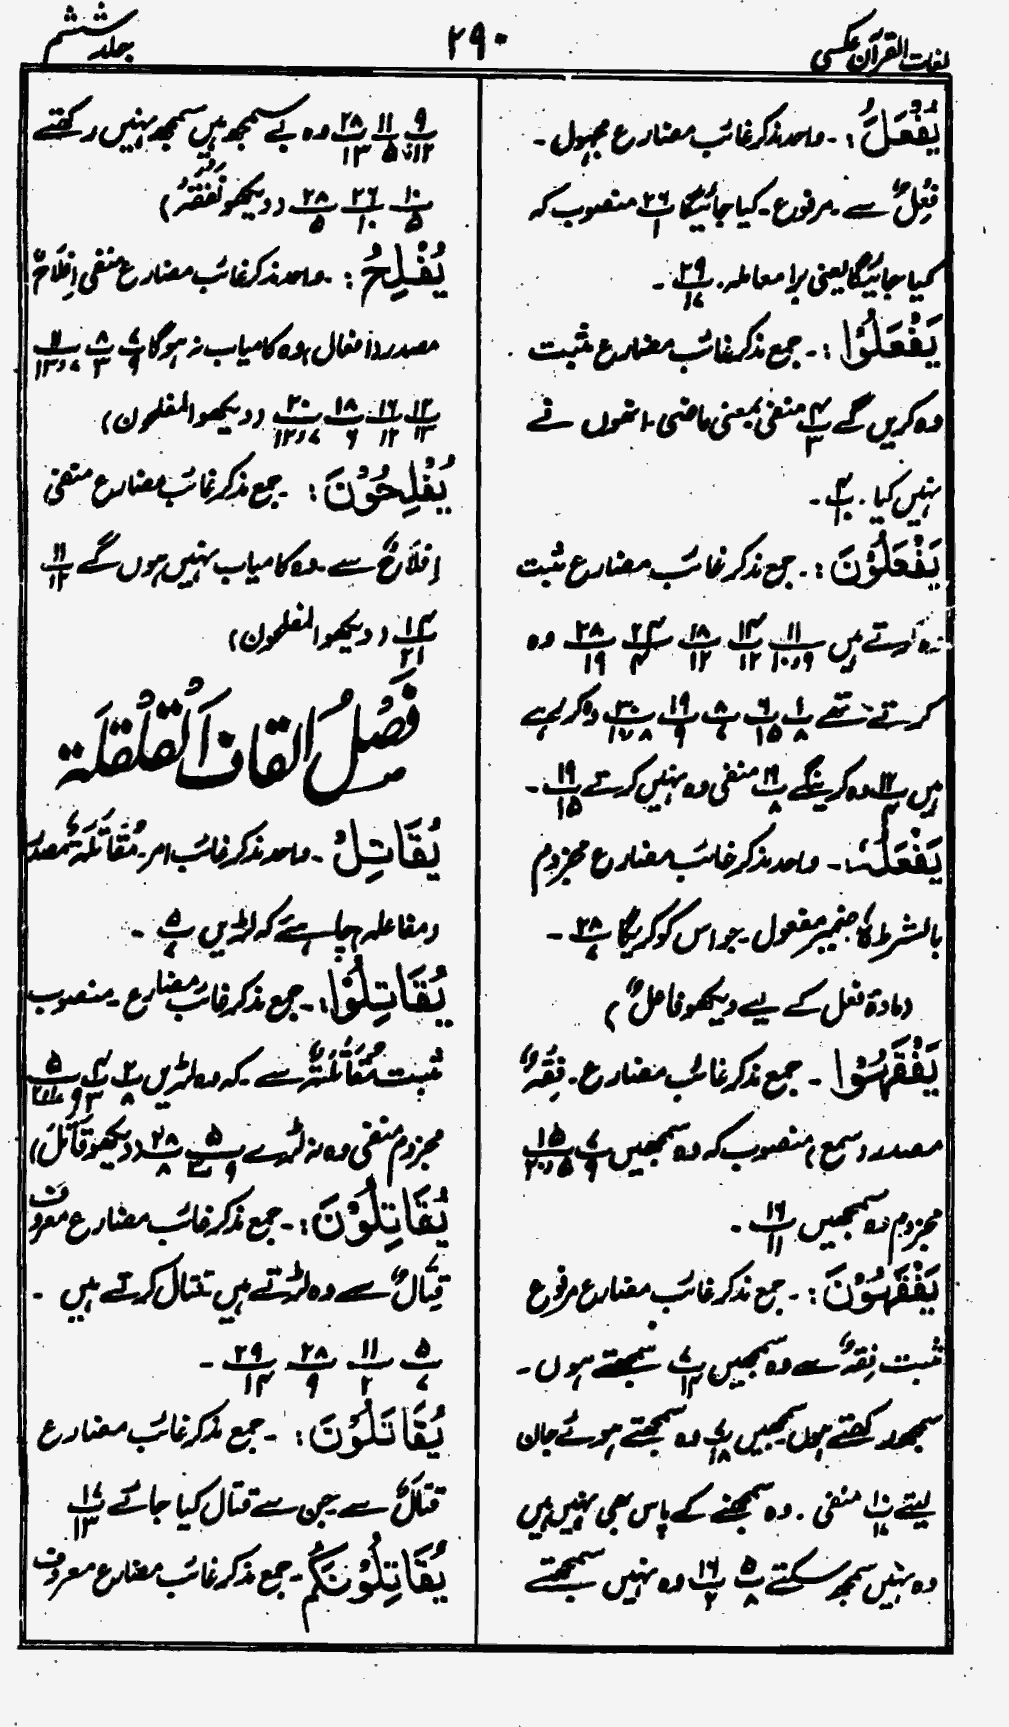 لغات القرآن عکسی
۲۹۰
جلد ششم
يُفْعَلُ :۔ واحد مذکر غائب مضارع مجہول ۔
فِعْلٌ سے ۔ مرفوع ۔ کیا جائیگا ۲۶/۱ منصوب کہ
کیا جائیگا یعنی برا معاملہ ۔ ۲۹/۱۷ ۔
يَفْعَلُوْا :۔ جمع مذکر غائب مضارع مثبت
وہ کریں گے ۴/۳ منفی بمعنی ماضی ۔ انھوں نے
نہیں کیا ۔ ۴/۱۰ ۔
يَفْعَلُوْنَ :۔ جمع مذکر غائب مضارع مثبت
وہ کرتے ہیں ۱۱/۹و۱۰ ۱۴/۱۲ ۱۸/۱۲ ۲۴/۴ ۲۸/۱۹ وہ
کرتے تھے ۱/۸ ۶/۱۵ ۸/۷ ۱۹/۹ ۳۰/ وہ کر رہے
ہیں ۱۲/ وہ کرینگے ۱۹/۸ منفی وہ نہیں کرتے ۱۹/۱۵ ۔
يَفْعَلْ ۔ واحد مذکر غائب مضارع مجزوم
بالشرط ہٗ ضمیر مفعول ۔ جو اس کو کریگا ۲۸/۷ ۔
(مادۃ فعل کے لیے دیکھو فاعلٌ)
يَفْقَهُوْا ۔ جمع مذکر غائب مضارع ۔ فِقْهٌ
مصدر (سمع) منصوب کہ وہ سمجھیں ۷/۹ ۱۵/۵و۲۰
مجزوم وہ سمجھیں ۱۶/۱۱ ۔
يَفْقَهُوْنَ :۔ جمع مذکر غائب مضارع مرفوع
مثبت فِقْهٌ سے وہ سمجھیں ۷/۱۴ سمجھتے ہوں ۔
سمجھ رکھتے ہوں سمجھیں ۷/۱۸ وہ سمجھتے ہوئے جان
لیتے ۱۰/۱۷ منفی ۔ وہ سمجھنے کے پاس بھی نہیں ہیں
وہ نہیں سمجھ سکتے ۵/۸ ۱۶/۲ وہ نہیں سمجھتے
۹/۱۲ ۱۱/۵ ۲۸/۱۳ وہ بے سمجھ ہیں سمجھ نہیں رکھتے
۱۰/۵ ۲۶/۱۰ ۲۸/۵ (دیکھو نَفْقَهُ)
يُفْلِحُ :۔ واحد مذکر غائب مضارع منفی اِفْلَاحٌ
مصدر (افعال) وہ کامیاب نہ ہوگا ۷/۹ ۸/۳ ۱۱/۷و۱۳
۱۲/۱۳ ۱۶/۱۲ ۱۸/۶ ۲۰/۷و۱۲ (دیکھو المفلحون)
يُفْلِحُوْنَ :۔ جمع مذکر غائب مضارع منفی
اِفْلَاحٌ سے ۔ وہ کامیاب نہیں ہوں گے ۱۱/۱۲
۱۴/۲۱ (دیکھو المفلحون)
فَصْلُ القاف الْقَلْقَلَة
يُقَاتِلُ ۔ واحد مذکر غائب امر ۔ مُقَاتَلَةٌ مصدر
(مفاعلہ) چاہئے کہ لڑیں ۵/۷ ۔
يُقَاتِلُوْا :۔ جمع مذکر غائب مضارع ۔ منصوب
مثبت مُقَاتَلَةٌ سے ۔ کہ وہ لڑیں ۲/۸ ۴/۳و۹ ۵/
مجزوم منفی وہ نہ لڑے ۵/۹ ۲۸/۸ (دیکھو قَاتَلَ)
يُقَاتِلُوْنَ :۔ جمع مذکر غائب مضارع معروف
قِتَالٌ سے وہ لڑتے ہیں قتال کرتے ہیں ۔
۵/۷ ۱۱/۲ ۲۸/۹ ۲۹/۱۴ ۔
يُقَاتَلُوْنَ :۔ جمع مذکر غائب مضارع
قِتَالٌ سے جن سے قتال کیا جائے ۱۷/۱۳
يُقَاتِلُوْنَكُمْ ۔ جمع مذکر غائب مضارع معروف